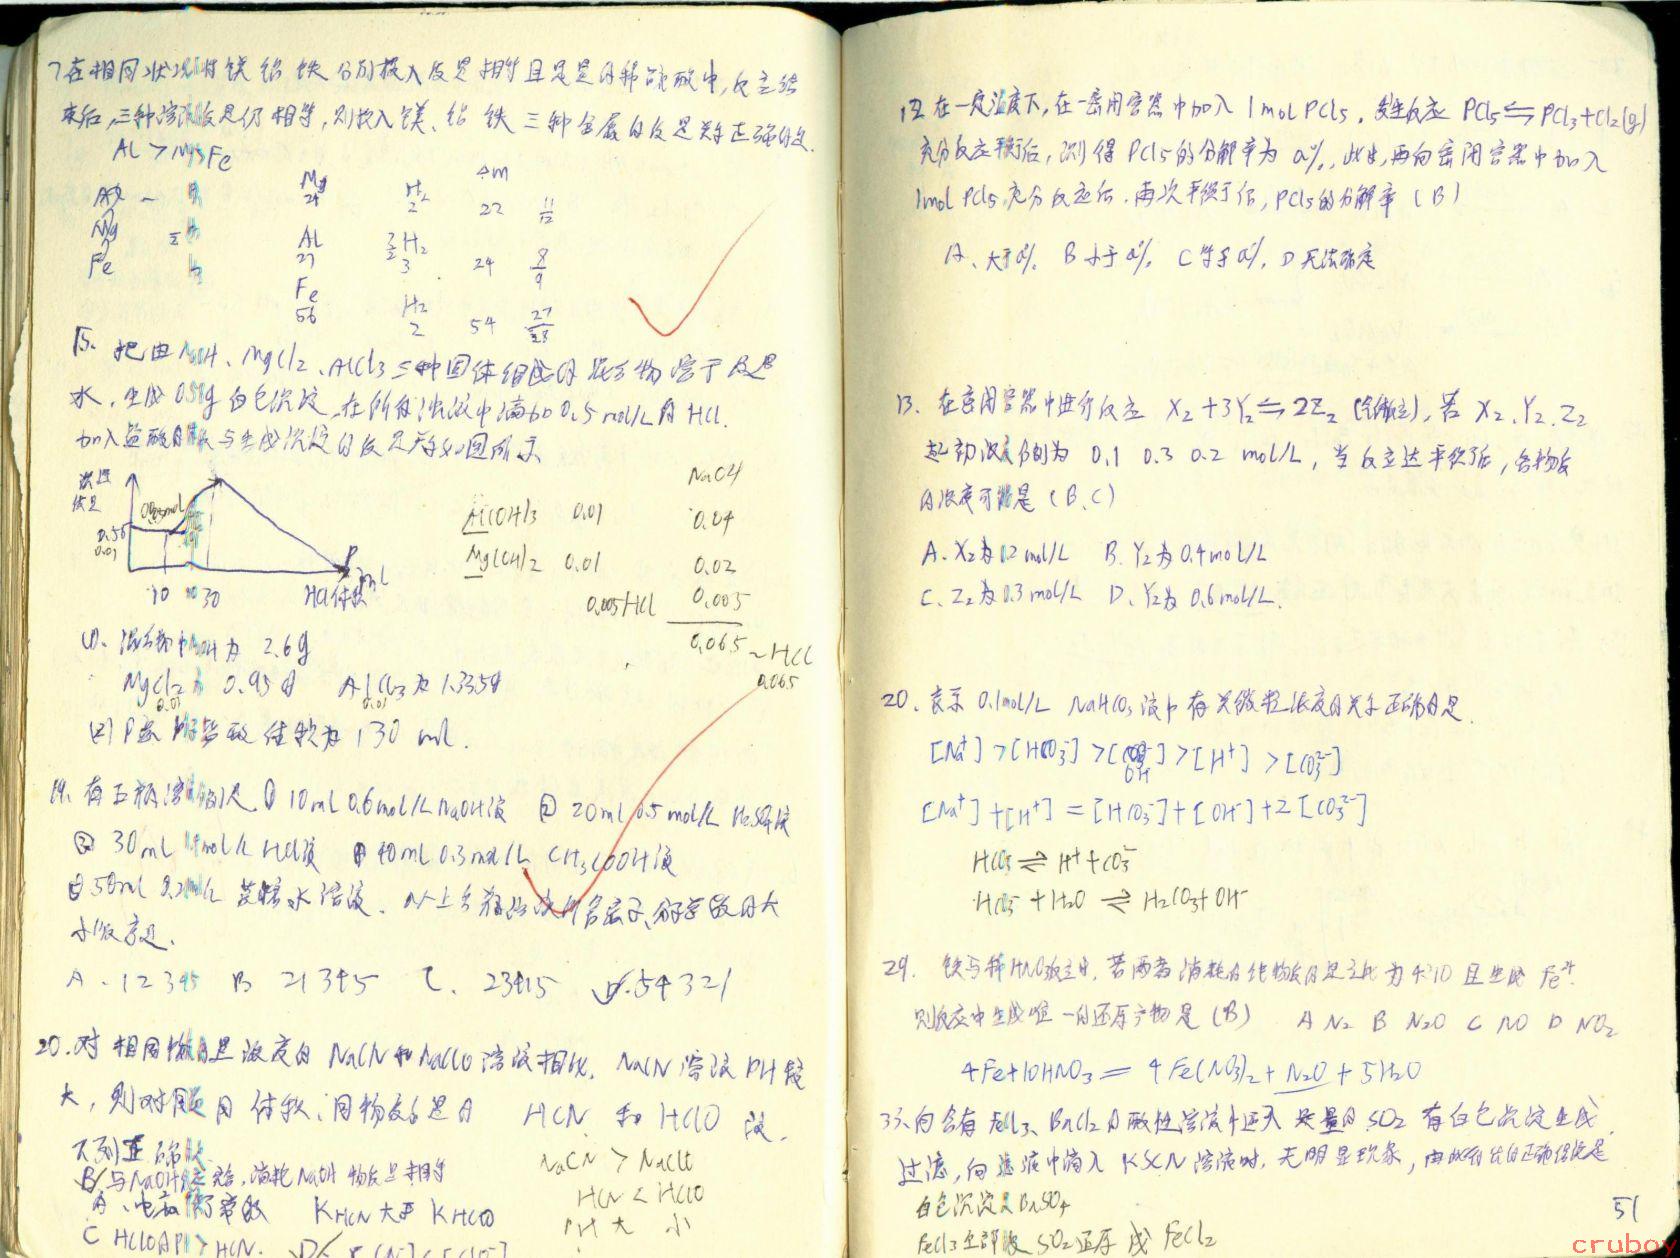 7在相同状况将镁铝铁分别投入质量相等且足量的稀硫酸中,反应结
束后,三种溶液质量仍相等,则投入镁、铝 铁 三种金属的质量关系正确的是.
Al > Mg > Fe
Mg H₂ Δm
24 2 22 11/12
Mg
Al 3/2 H₂
27 3 24 8/9
Fe
Fe H₂
56 2 54 27/28
15. 把由NaOH、MgCl₂、AlCl₃三种固体组成的混合物溶于足量
水,生成0.58g白色沉淀,在所得浊液中滴加0.5mol/L的HCl.
加入盐酸体积与生成沉淀的质量关系如图所示
沉淀
质量
0.58
0.01
P
10 30 HCl体积 ml
NaOH
Al(OH)₃ 0.01 0.04
Mg(OH)₂ 0.01 0.02
0.005HCl 0.005
0.065 ~ HCl
0.065
(1). 混合物中NaOH为 2.6g
MgCl₂为 0.95g AlCl₃为1.335g
0.01 0.01
(2) P点 盐酸体积为130 ml.
19. 有五瓶溶液分别是 ① 10ml 0.6mol/L NaOH液 ② 20ml 0.5mol/L H₂SO₄液
③ 30ml HCl液 ④ 40ml 0.3mol/L CH₃COOH液
⑤ 50ml 0.2mol/L 蔗糖水溶液. 以上各瓶溶液所含离子、分子总数的大
小顺序是.
A. 12345 B 21345 C. 23415 D.54321
20. 对相同物质的量浓度的NaCN和NaClO溶液相比, NaCN溶液PH较
大, 则对同温同体积、同物质的量的 HCN 和 HClO 液.
下列正确的
B 与NaOH 消耗NaOH物质的量相等
A、电离平衡常数 K HCN 大于 K HClO
C HClO的PH > HCN.
NaCN > NaClO
HCN < HClO
PH 大 小
12 在一定温度下,在一密闭容器中加入 1mol PCl₅, 发生反应 PCl₅⇌PCl₃+Cl₂(g)
充分反应平衡后, 测得PCl₅的分解率为 a%, 此时,再向密闭容器中加入
1mol PCl₅充分反应后.再次平衡后, PCl₅的分解率 (B)
A、大于a%. B 小于a%. C 等于a%. D 无法确定
13. 在密闭容器中进行反应 X₂+3Y₂⇌2Z₂ (气体), 若 X₂.Y₂.Z₂
起初浓度分别为 0.1 0.3 0.2 mol/L, 当反应达平衡后, 各物质
的浓度可能是 (B.C)
A. X₂为0.2mol/L B. Y₂为0.4mol/L
C. Z₂为0.3mol/L D. Y₂为0.6mol/L.
20. 表示 0.1mol/L NaHCO₃液中有关微粒浓度的关系正确的是.
[Na⁺]>[HCO₃⁻]>[OH⁻]>[H⁺]>[CO₃²⁻]
[Na⁺]+[H⁺]=[HCO₃⁻]+[OH⁻]+2[CO₃²⁻]
HCO₃⁻⇌H⁺+CO₃²⁻
HCO₃⁻+H₂O⇌H₂CO₃+OH⁻
29. 铁与稀HNO₃反应时, 若两者消耗的物质的量之比为4:10 且生成 Fe²⁺.
则反应中生成唯一的还原产物是 (B) A N₂ B N₂O C NO D NO₂
4Fe+10HNO₃=4Fe(NO₃)₂+N₂O+5H₂O
33、向含有FeCl₃、BaCl₂的酸性溶液中通入足量的SO₂有白色沉淀生成.
过滤, 向滤液中滴入KSCN溶液时, 无明显现象, 由此得出的正确结论是
白色沉淀是BaSO₄
FeCl₃全部被SO₂还原成FeCl₂
51
cruboy